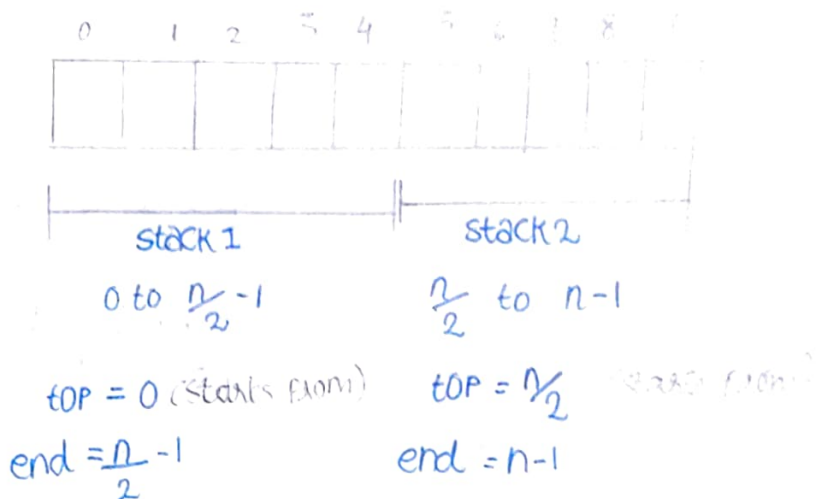 0 1 2 3 4 5 6 7 8
stack 1 stack 2
0 to n/2 -1 n/2 to n-1
top = 0 (starts from) top = n/2 (starts from)
end = n/2 -1 end = n-1